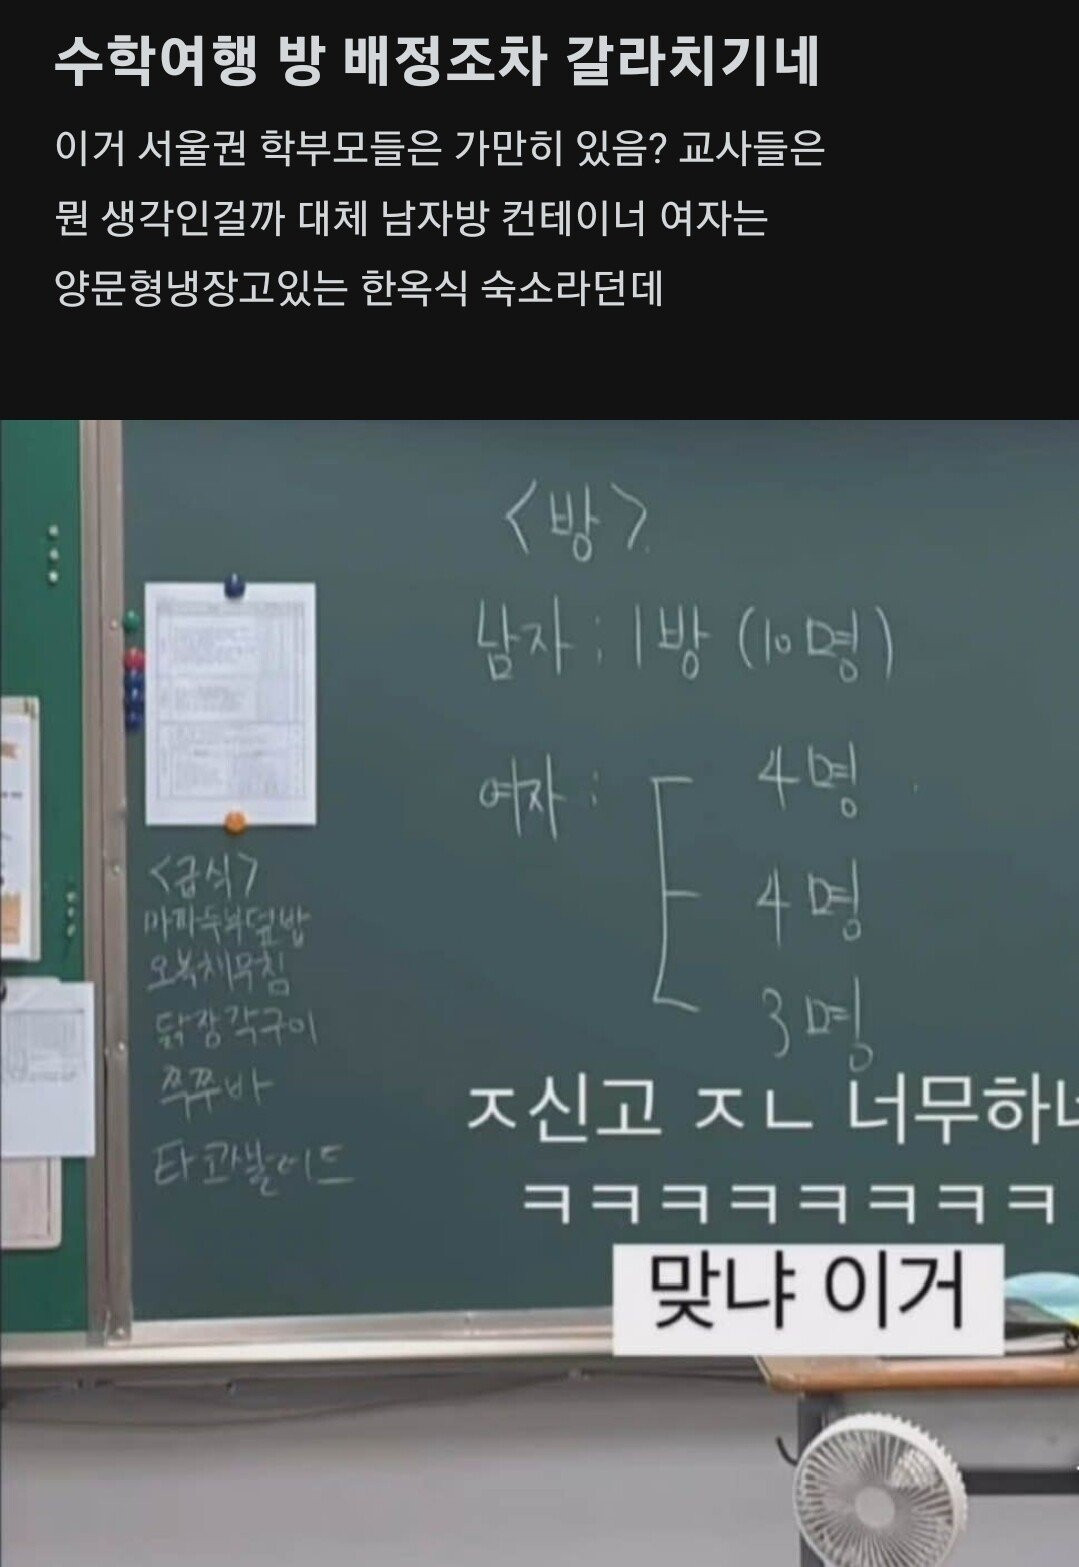 수학여행 방 배정조차 갈라치기네
이거 서울권 학부모들은 가만히 있음? 교사들은
뭔 생각인걸까 대체 남자방 컨테이너 여자는
양문형냉장고있는 한옥식 숙소라던데
<방>
남자 : 1방 (10명)
여자 : 4명
4명
3명
<급식>
마파두부덮밥
오복채무침
닭장각구이
쭉쭈바
타코볼
ㅈ신고 ㅈㄴ 너무하네
ㅋㅋㅋㅋㅋㅋㅋㅋ
맞냐 이거